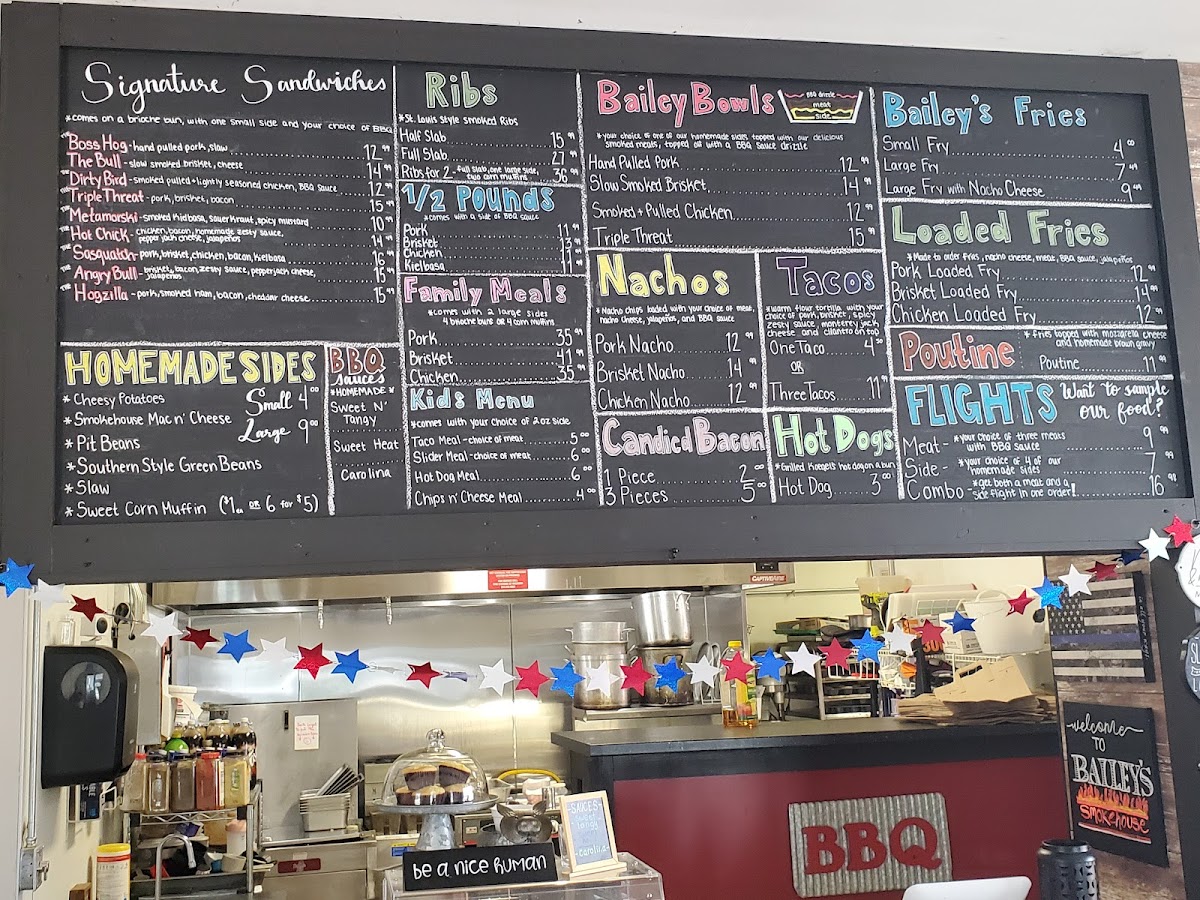 Signature Sandwiches
*comes on a brioche bun, with one small side and your choice of BBQ
The Boss Hog - hand pulled pork, slaw 12.99
The Bull - slow smoked brisket, cheese 14.99
The Dirty Bird - smoked pulled + lightly seasoned chicken, BBQ sauce 12.99
The Triple Threat - pork, brisket, bacon 15.99
The Metamorski - smoked kidbasa, sauerkraut, spicy mustard 10.99
The Hot Chick - chicken, bacon, homemade zesty sauce,
pepper jack cheese, jalapeños 14.99
The Sasquatch - pork, brisket, chicken, bacon, kielbasa 16.99
The Angry Bull - brisket, bacon, zesty sauce, pepperjack cheese,
jalapeños 15.99
The Hogzilla - pork, smoked ham, bacon, cheddar cheese 15.99
HOMEMADE SIDES
* Cheesy Potatoes
* Smokehouse Mac n' Cheese
* Pit Beans
* Southern Style Green Beans
* Slaw
* Sweet Corn Muffin ($1ea OR 6 for $5)
Small 4.00
Large 9.00
BBQ
sauces
*HOMEMADE*
Sweet N'
Tangy
Sweet Heat
Carolina
Ribs
*St. Louis Style Smoked Ribs
Half Slab 15.99
Full Slab 27.99
Ribs for 2 - full slab, one large side,
two corn muffins 36.99
1/2 Pounds
*comes with a side of BBQ sauce
Pork 11.99
Brisket 13.99
Chicken 11.99
Kielbasa 11.99
Family Meals
*comes with 2 large sides
4 brioche buns or 4 corn muffins
Pork 35.99
Brisket 41.99
Chicken 35.99
Kid's Menu
*comes with your choice of 2oz side
Taco Meal - choice of meat 5.00
Slider Meal - choice of meat 6.00
Hot Dog Meal 6.00
Chips n' Cheese Meal 4.00
Bailey Bowls
BBQ drizzle
meat
side
*your choice of one of our homemade sides topped with our delicious
smoked meats, topped off with a BBQ sauce drizzle
Hand Pulled Pork 12.99
Slow Smoked Brisket 14.99
Smoked + Pulled Chicken 12.99
Triple Threat 15.99
Nachos
*Nacho chips loaded with your choice of meat,
nacho cheese, jalapeños, and BBQ sauce
Pork Nacho 12.99
Brisket Nacho 14.99
Chicken Nacho 12.99
Tacos
*warm flour tortilla with your
choice of pork, brisket, spicy
zesty sauce, monterey jack
cheese and cilantro on top
One Taco 4.50
OR
Three Tacos 11.99
Candied Bacon
1 Piece 2.00
3 Pieces 5.00
Hot Dogs
*Grilled Koegel's hot dog on a bun
Hot Dog 3.00
Bailey's Fries
Small Fry 4.00
Large Fry 7.49
Large Fry with Nacho Cheese 9.49
Loaded Fries
*Made to order fries, nacho cheese, meat, BBQ sauce, jalapeños
Pork Loaded Fry 12.99
Brisket Loaded Fry 14.99
Chicken Loaded Fry 12.99
Poutine
* Fries topped with mozzarella cheese
and homemade brown gravy
Poutine 11.99
FLIGHTS
Want to sample
our food?
Meat - *your choice of three meats
with BBQ sauce 9.99
Side - *your choice of 4 of our
homemade sides 7.99
Combo - *get both a meat and a
side flight in one order! 16.99
CAPTIVEAIRE
welcome
TO
BAILEY'S
smokehouse
BBQ
SAUCES
sweet
tangy
carolina
be a nice human